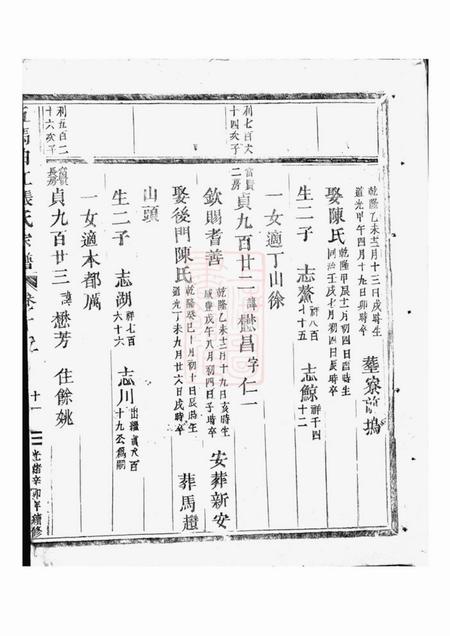 乾隆乙未十二月十三日戌時生
道光甲午四月十九日卯時卒
葬寮前塢
娶陳氏
乾隆甲辰十一月初四日酉時生
同治壬戌七月初四日亥時卒
生二子 志鰲 祥八百七十五 志鯨 祥千四十二
一女適丁山徐
利七百六十四次子
貞九百廿二 諱懋昌字仁一
欽賜耆善
乾隆乙未十二月十九日亥時生
咸豐戊午八月初四日子時卒
安葬新安
娶後門陳氏
乾隆癸巳十一月初十日辰時生
道光丁未九月廿六日戌時卒
葬馬
山頭
生二子 志湖 祥七百六十六 志川 出繼貞九百十九公為嗣
一女適本都厲
利五百二十六次子
貞九百廿三 諱懋芳 住餘姚
張氏宗譜
十一
光緒辛卯年續修